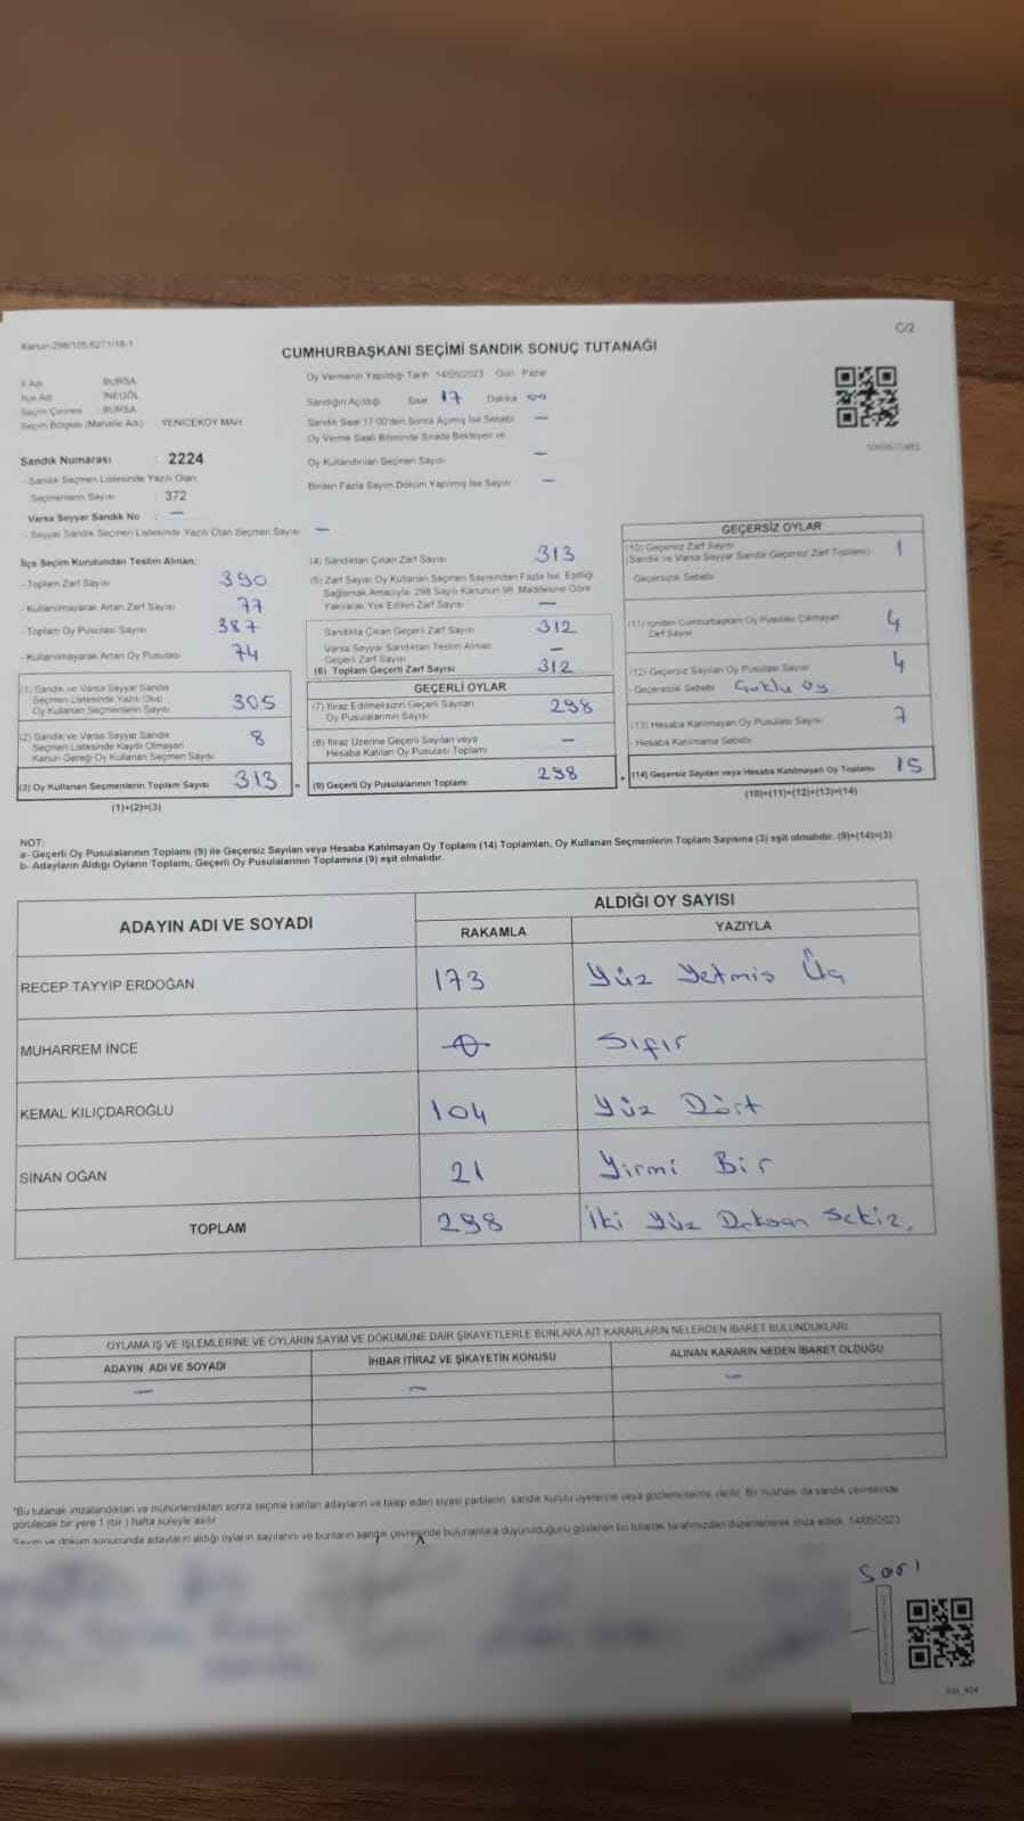 Kanun 298/105,6271/18-1
C/2
CUMHURBAŞKANI SEÇİMİ SANDIK SONUÇ TUTANAĞI
İl Adı BURSA
İlçe Adı İNEGÖL
Seçim Çevresi : BURSA
Seçim Bölgesi (Mahalle Adı) YENİCEKÖY MAH.
Sandık Numarası : 2224
- Sandık Seçmen Listesinde Yazılı Olan
Seçmenlerin Sayısı : 372
Varsa Seyyar Sandık No : —
- Seyyar Sandık Seçmen Listesinde Yazılı Olan Seçmen Sayısı —
Oy Vermenin Yapıldığı Tarih 14/05/2023 Gün Pazar
Sandığın Açıldığı Saat 17 Dakika 00
Sandık Saat 17.00'den Sonra Açılmış İse Sebebi —
Oy Verme Saati Bitiminde Sırada Bekleyen ve
Oy Kullandırılan Seçmen Sayısı —
Birden Fazla Sayım Döküm Yapılmış İse Sayısı —
İlçe Seçim Kurulundan Teslim Alınan:
- Toplam Zarf Sayısı 390
- Kullanılmayarak Artan Zarf Sayısı 77
- Toplam Oy Pusulası Sayısı 387
- Kullanılmayarak Artan Oy Pusulası 74
(1) Sandık ve Varsa Seyyar Sandık
Seçmen Listesinde Yazılı Olup
Oy Kullanan Seçmenlerin Sayısı 305
(2) Sandık ve Varsa Seyyar Sandık
Seçmen Listesinde Kayıtlı Olmayan
Kanun Gereği Oy Kullanan Seçmen Sayısı 8
(3) Oy Kullanan Seçmenlerin Toplam Sayısı 313
(1)+(2)=(3)
(4) Sandıktan Çıkan Zarf Sayısı 313
(5) Zarf Sayısı Oy Kullanan Seçmen Sayısından Fazla İse, Eşitliği
Sağlamak Amacıyla, 298 Sayılı Kanunun 98. Maddesine Göre
Yakılarak Yok Edilen Zarf Sayısı —
Sandıkta Çıkan Geçerli Zarf Sayısı 312
Varsa Seyyar Sandıktan Teslim Alınan
Geçerli Zarf Sayısı —
(6) Toplam Geçerli Zarf Sayısı 312
GEÇERLİ OYLAR
(7) İtiraz Edilmeksizin Geçerli Sayılan
Oy Pusulalarının Sayısı 298
(8) İtiraz Üzerine Geçerli Sayılan veya
Hesaba Katılan Oy Pusulası Toplamı —
(9) Geçerli Oy Pusulalarının Toplamı 298
GEÇERSİZ OYLAR
(10) Geçersiz Zarf Sayısı
(Sandık ve Varsa Seyyar Sandık Geçersiz Zarf Toplamı) 1
Geçersizlik Sebebi
(11) İçinden Cumhurbaşkanı Oy Pusulası Çıkmayan
Zarf Sayısı 4
(12) Geçersiz Sayılan Oy Pusulası Sayısı 4
- Geçersizlik Sebebi Çoklu oy
(13) Hesaba Katılmayan Oy Pusulası Sayısı 7
- Hesaba Katılmama Sebebi
(14) Geçersiz Sayılan veya Hesaba Katılmayan Oy Toplamı 15
(10)+(11)+(12)+(13)=(14)
NOT:
a- Geçerli Oy Pusulalarının Toplamı (9) ile Geçersiz Sayılan veya Hesaba Katılmayan Oy Toplamı (14) Toplamları, Oy Kullanan Seçmenlerin Toplam Sayısına (3) eşit olmalıdır. (9)+(14)=(3)
b- Adayların Aldığı Oyların Toplamı, Geçerli Oy Pusulalarının Toplamına (9) eşit olmalıdır.
ADAYIN ADI VE SOYADI
ALDIĞI OY SAYISI
RAKAMLA YAZIYLA
RECEP TAYYİP ERDOĞAN 173 Yüz Yetmiş Üç
MUHARREM İNCE 0 Sıfır
KEMAL KILIÇDAROĞLU 104 Yüz Dört
SİNAN OĞAN 21 Yirmi Bir
TOPLAM 298 İki Yüz Doksan Sekiz.
OYLAMA İŞ VE İŞLEMLERİNE VE OYLARIN SAYIM VE DÖKÜMÜNE DAİR ŞİKAYETLERLE BUNLARA AİT KARARLARIN NELERDEN İBARET BULUNDUKLARI
ADAYIN ADI VE SOYADI İHBAR İTİRAZ VE ŞİKAYETİN KONUSU ALINAN KARARIN NEDEN İBARET OLDUĞU
— — —
*Bu tutanak imzalandıktan ve mühürlendikten sonra seçime katılan adayların ve talep eden siyasi partilerin, sandık kurulu üyelerine veya gözlemcilerine verilir. Bir nüshası da sandık çevresinde
görülecek bir yere 1 (bir) hafta süreyle asılır.
Sayım ve döküm sonucunda adayların aldığı oyların sayılarını ve bunların sandık çevresinde bulunanlara duyurulduğunu gösteren bu tutanak tarafımızdan düzenlenerek imza edildi. 14/05/2023
Sarı